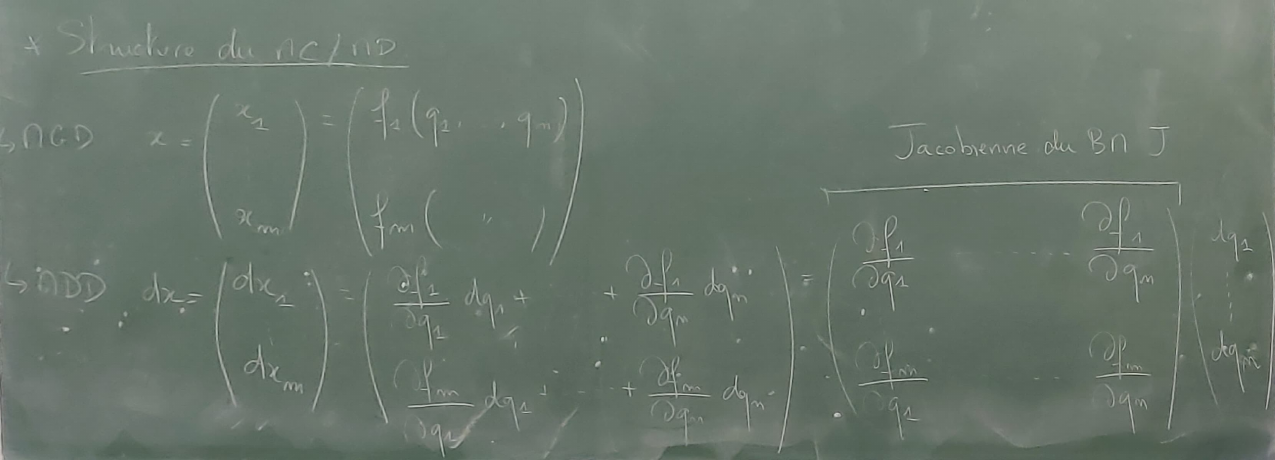 * Structure du MC/MD
↳ MGD x = ( x₁ ; xₘ ) = ( f₁(q₁, .., qₙ) ; fₘ( " ) )
Jacobienne du BM J
↳ MDD dx = ( dx₁ ; dxₘ ) = ( ∂f₁/∂q₁ dq₁ + + ∂f₁/∂qₙ dqₙ ; ∂fₘ/∂q₁ dq₁ + ... + ∂fₘ/∂qₙ dqₙ ) = ( ∂f₁/∂q₁ ..... ∂f₁/∂qₙ ; ∂fₘ/∂q₁ ... ∂fₘ/∂qₙ ) . ( dq₁ ⋮ dqₙ )